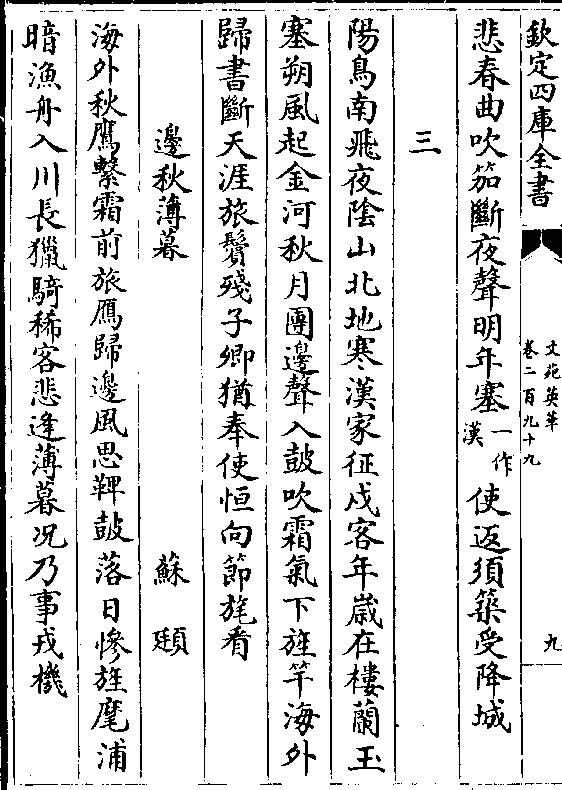 欽定四庫全書
文苑英華
卷二百九十九
九
悲春曲吹笳斷夜聲明年塞一作漢使返須築受降城
三
陽鳥南飛夜陰山北地寒漢家征戍客年歲在樓蘭玉
塞朔風起金河秋月團邊聲入鼓吹霜氣下旌竿海外
歸書斷天涯旅鬢殘子卿猶奉使恒向節旄看
邊秋薄暮 蘇頲
海外秋鷹擊霜前旅鴈歸邊風思鞞鼓落日慘旌麾浦
暗漁舟入川長獵騎稀客悲逢薄暮况乃事戎機